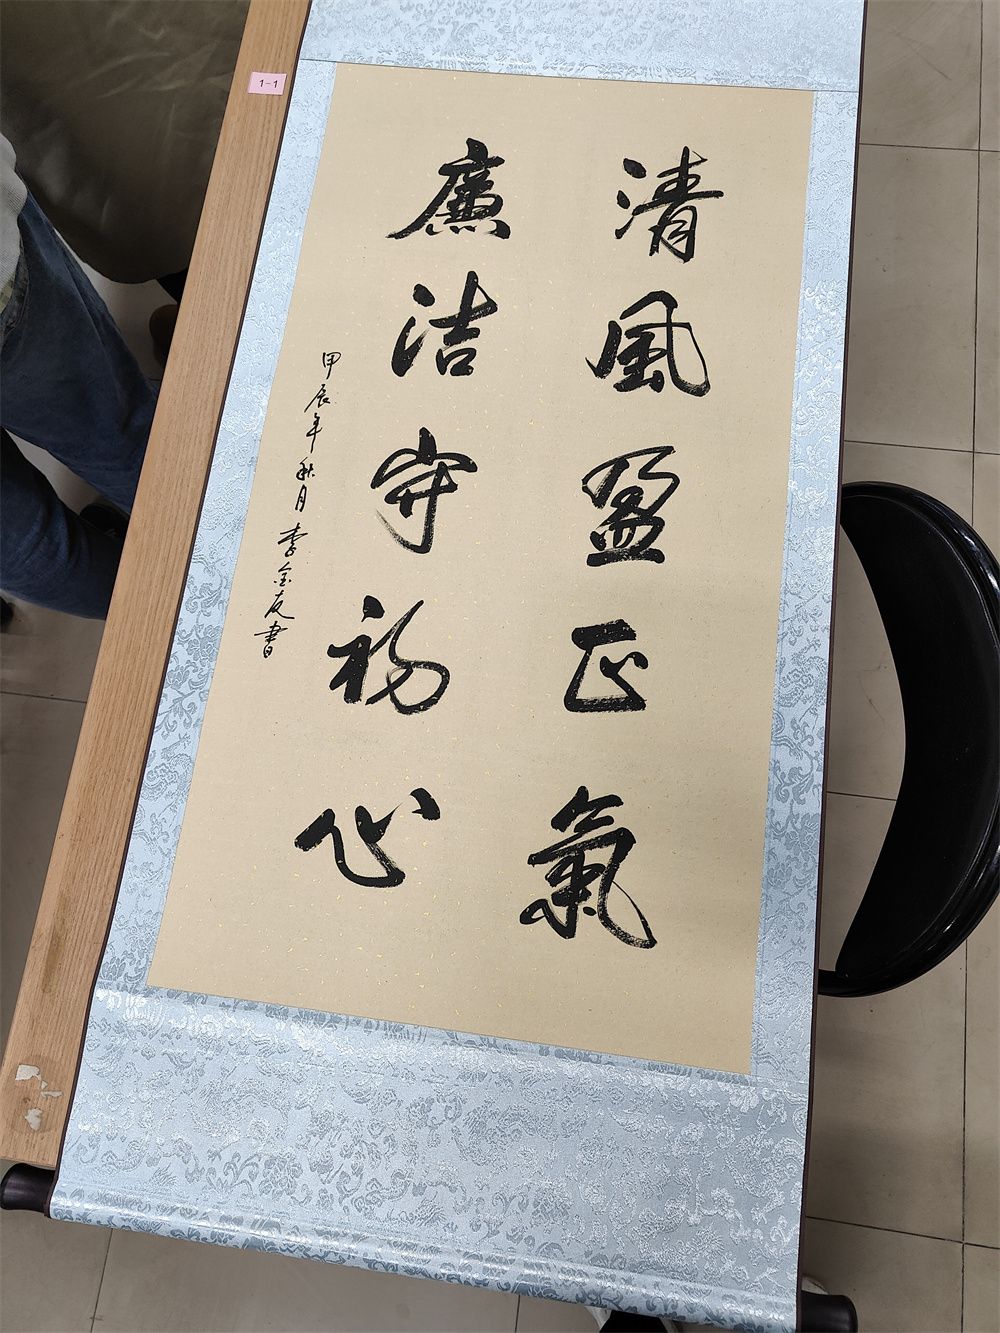 清風盈正氣
廉洁守初心
甲辰年秋月李金友書
1-1